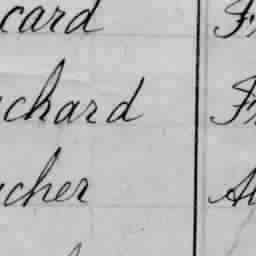 card Fr
chard Fr
cher Al